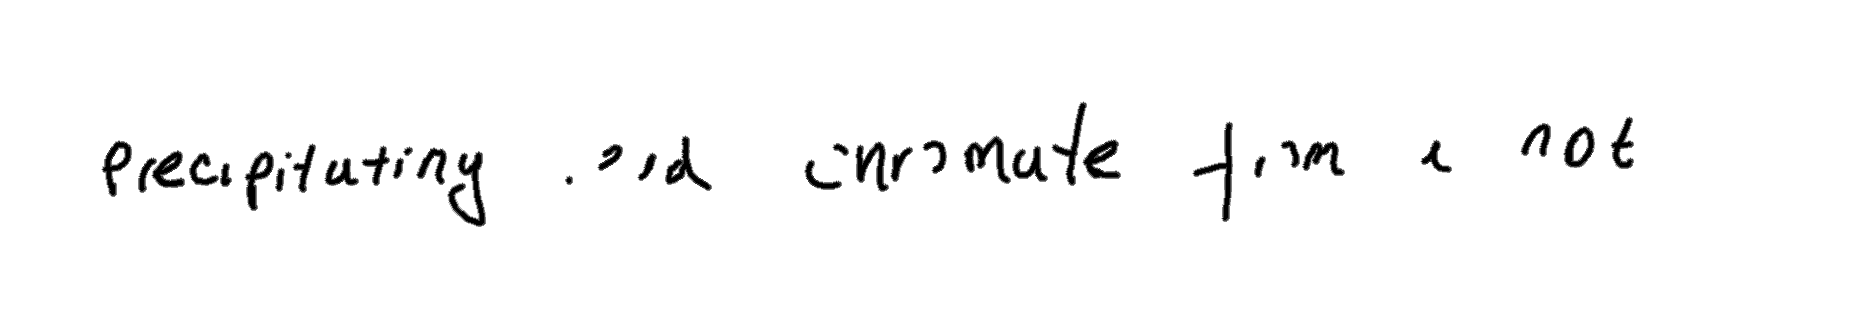 precipitating lead chromate from a hot